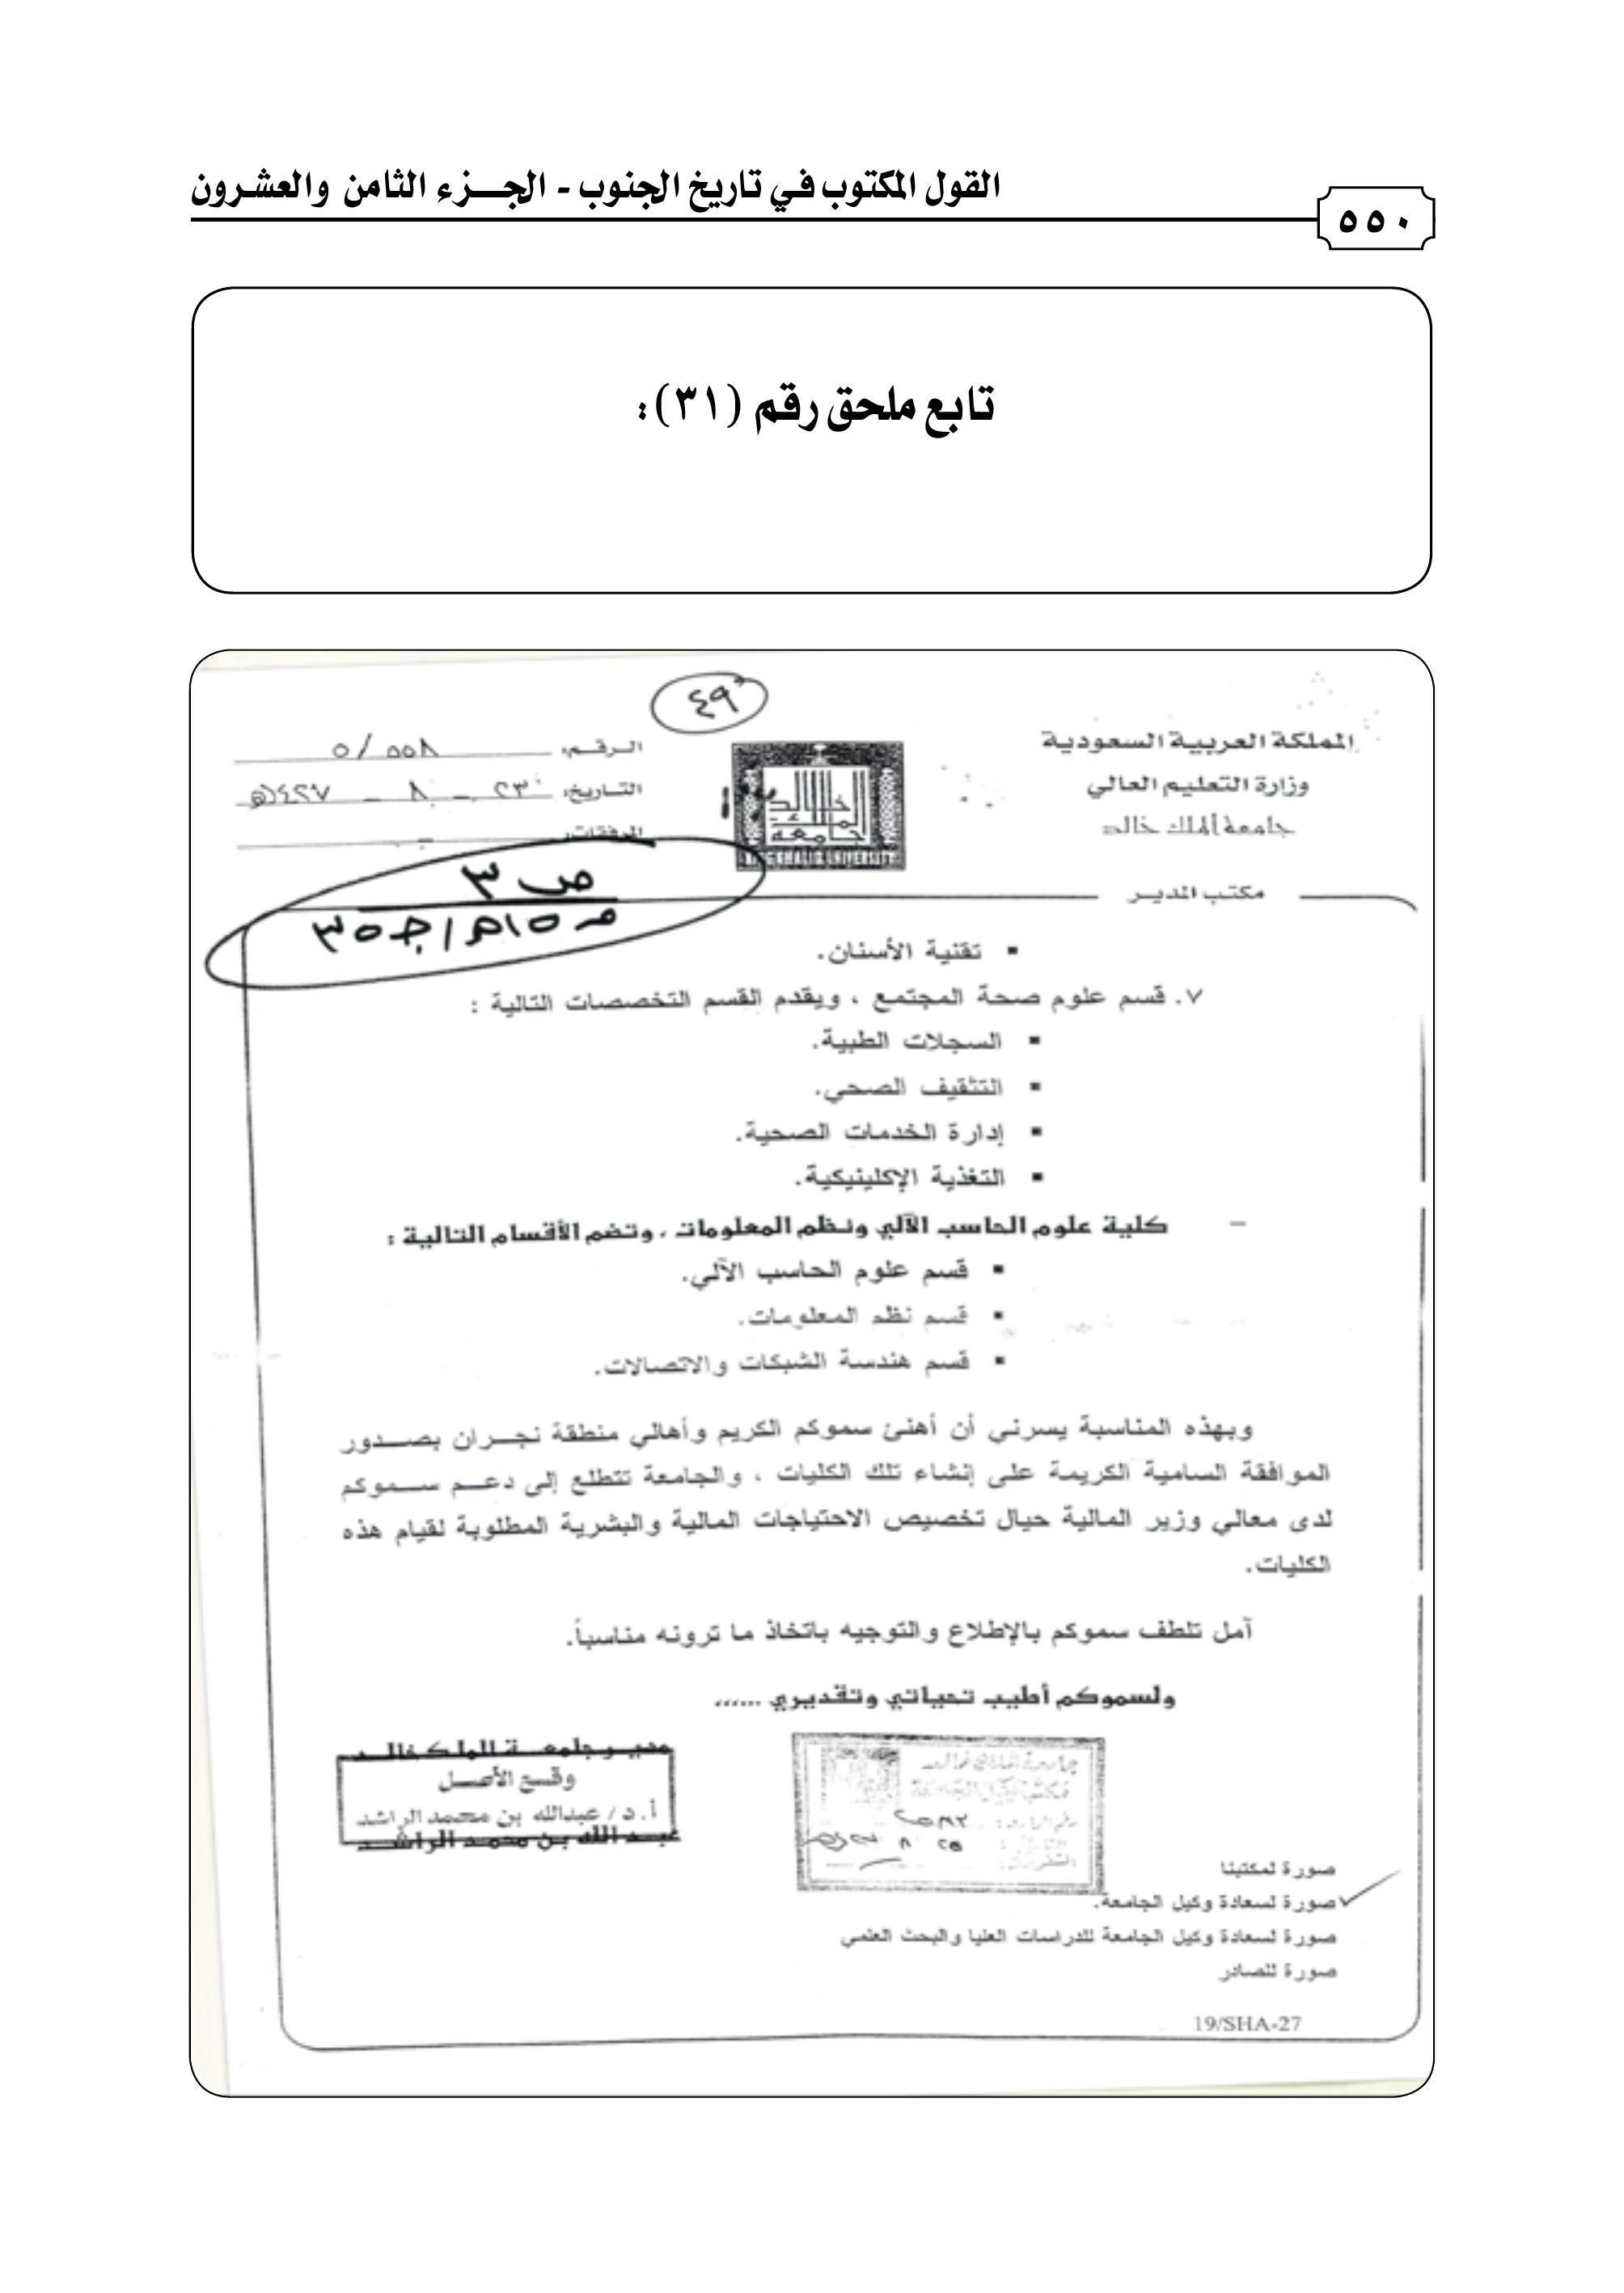 القول المكتوب في تاريخ الجنوب - الجزء الثامن والعشرون
٥٥٠
تابع ملحق رقم (٣١):
٤٩
المملكة العربية السعودية
وزارة التعليم العالي
جامعة الملك خالد
مكتب المدير
الرقم: ٥/٥٥٨
التاريخ: ٢٣ - ٨ - ١٤٢٧هـ
المرفقات:
جامعة الملك خالد
KING KHALID UNIVERSITY
ص ٣
▪ تقنية الأسنان.
٧. قسم علوم صحة المجتمع ، ويقدم القسم التخصصات التالية :
▪ السجلات الطبية.
▪ التثقيف الصحي.
▪ إدارة الخدمات الصحية.
▪ التغذية الإكلينيكية.
– كلية علوم الحاسب الآلي ونظم المعلومات ، وتضم الأقسام التالية :
▪ قسم علوم الحاسب الآلي.
▪ قسم نظم المعلومات.
▪ قسم هندسة الشبكات والاتصالات.
وبهذه المناسبة يسرني أن أهنئ سموكم الكريم وأهالي منطقة نجران بصدور
الموافقة السامية الكريمة على إنشاء تلك الكليات ، والجامعة تتطلع إلى دعم سموكم
لدى معالي وزير المالية حيال تخصيص الاحتياجات المالية والبشرية المطلوبة لقيام هذه
الكليات.
آمل تلطف سموكم بالإطلاع والتوجيه باتخاذ ما ترونه مناسباً.
ولسموكم أطيب تحياتي وتقديري ،،،،،،
مدير جامعة الملك خالد
وقع الأصل
أ.د/ عبدالله بن محمد الراشد
عبد الله بن محمد الراشد
جامعة الملك خالد
صورة لمكتبنا
صورة لسعادة وكيل الجامعة.
صورة لسعادة وكيل الجامعة للدراسات العليا والبحث العلمي
صورة للصادر
19/SHA-27